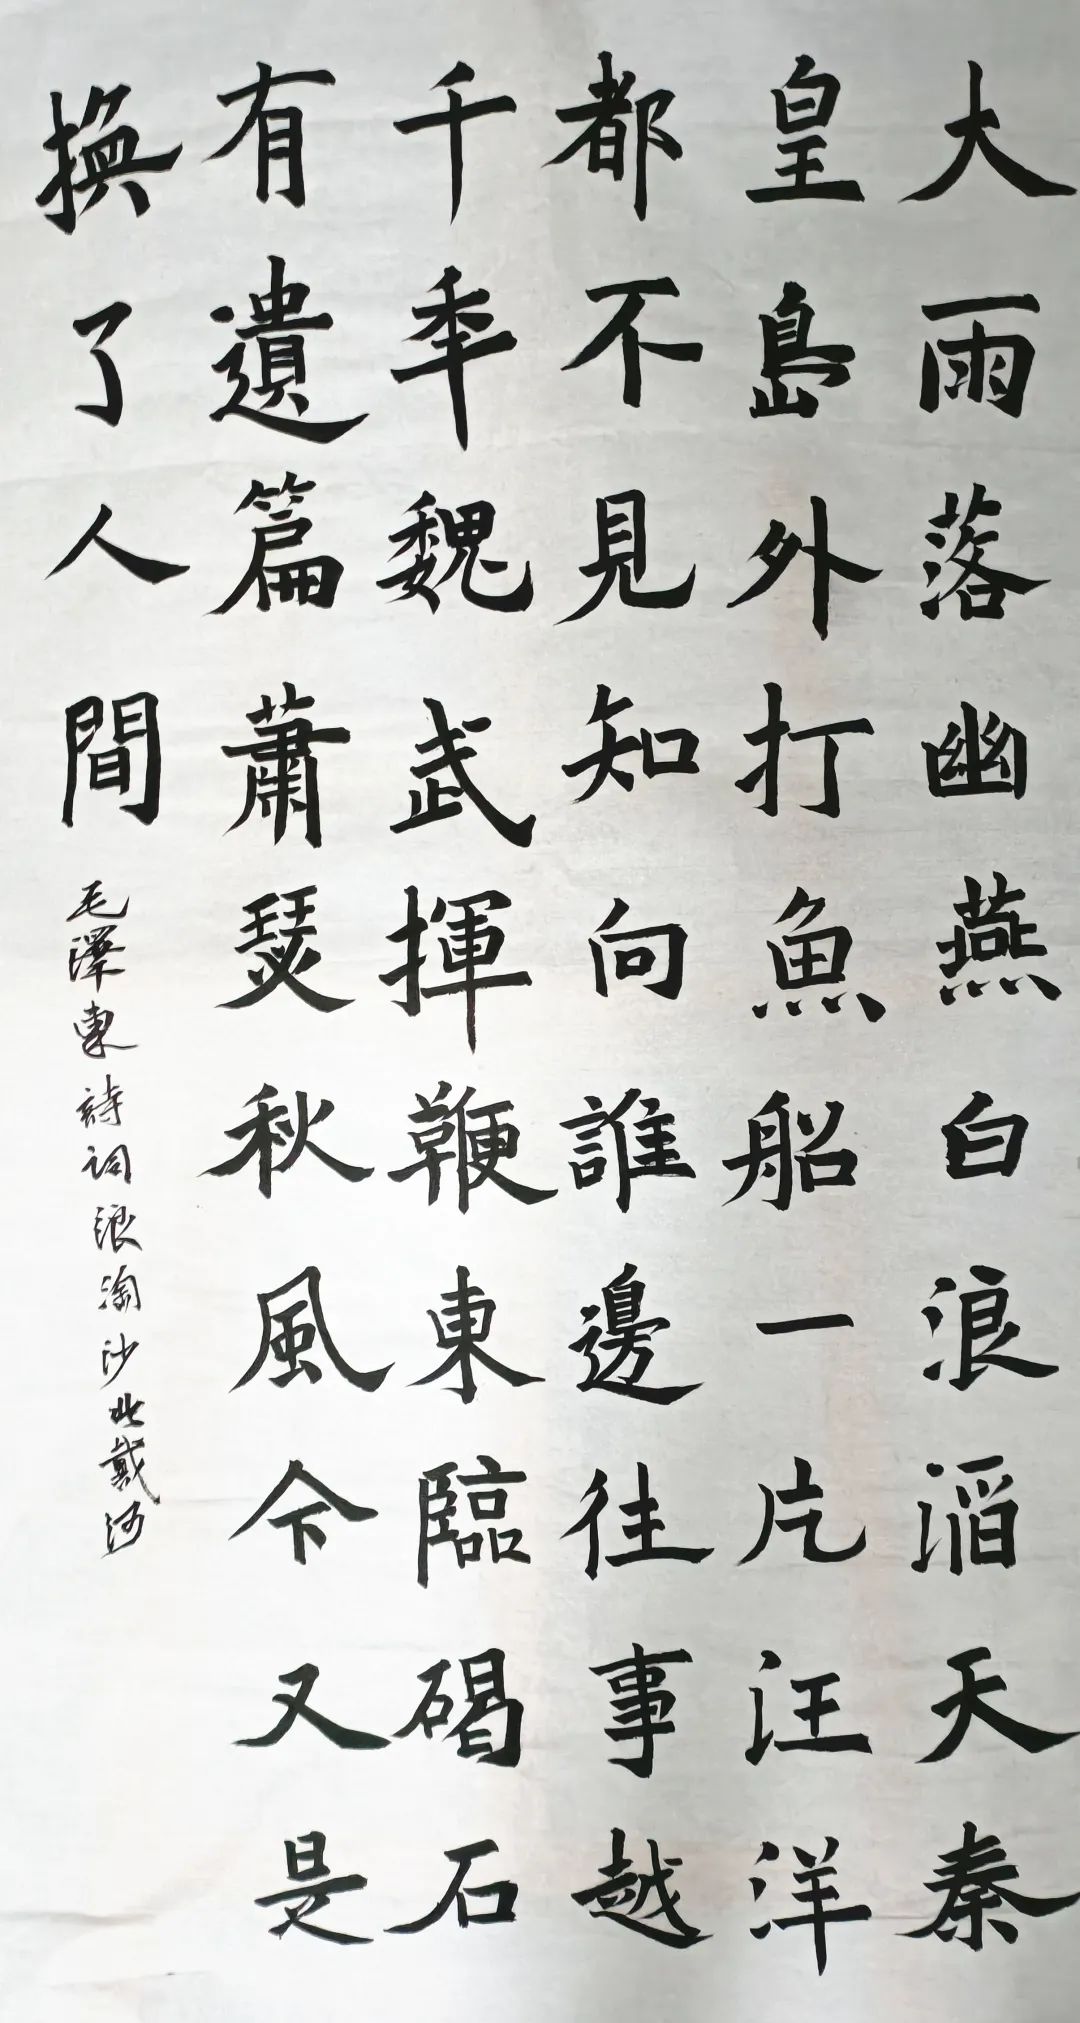 大雨落幽燕白浪滔天秦
皇島外打魚船一片汪洋
都不見知向誰邊往事越
千年魏武揮鞭東臨碣石
有遺篇蕭瑟秋風今又是
換了人間
毛澤東詩詞浪淘沙北戴河